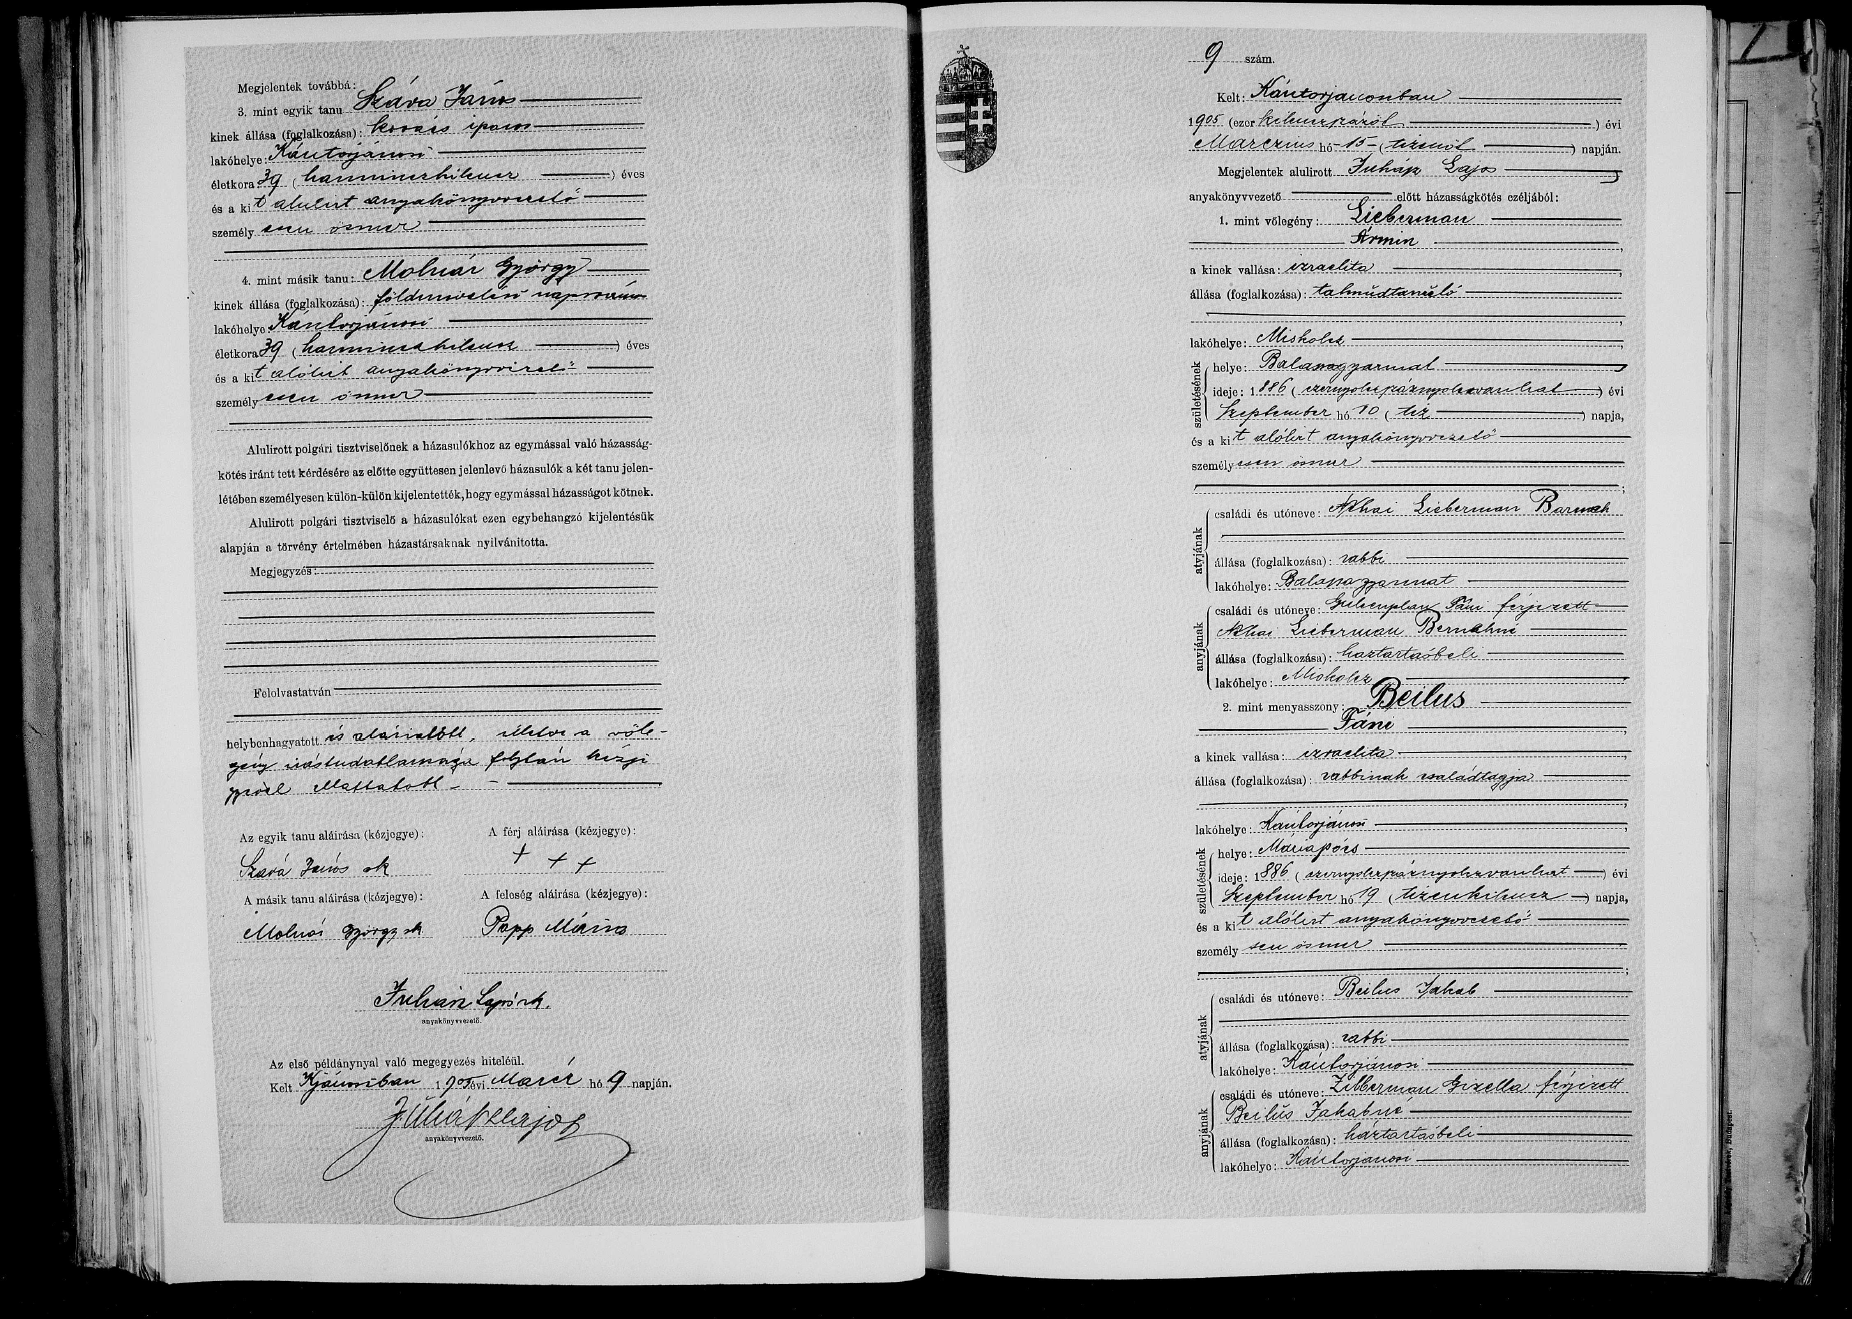 Megjelentek továbbá:
3. mint egyik tanu Száva János
kinek állása (foglalkozása): kovács iparos
lakóhelye: Kántorjánosi
életkora 39 (harminczkilencz) éves
és a kit alulirt anyakönyvvezető
személyesen ösmer
4. mint másik tanu: Molnár György
kinek állása (foglalkozása): földmivelési napszámos
lakóhelye: Kántorjánosi
életkora 39 (harminczkilencz) éves
és a kit alólirt anyakönyvvezető
személyesen ösmer
Alulirott polgári tisztviselőnek a házasulókhoz az egymással való házasság-
kötés iránt tett kérdésére az előtte együttesen jelenlevő házasulók a két tanu jelen-
létében személyesen külön-külön kijelentették, hogy egymással házasságot kötnek.
Alulirott polgári tisztviselő a házasulókat ezen egybehangzó kijelentésük
alapján a törvény értelmében házastársaknak nyilvánitotta.
Megjegyzés:
Felolvastatván
helybenhagyatott és aláiratott, illetve a vőle-
gény irástudatlansága folytán kézje
gyével elláttatott
Az egyik tanu aláirása (kézjegye): A férj aláirása (kézjegye):
Szavá János sk + + +
A másik tanu aláirása (kézjegye): A feleség aláirása (kézjegye):
Molnár György sk Papp Mária
Juhász Lajos sk.
anyakönyvvezető.
Az első példánynyal való megegyezés hiteléül.
Kelt Kjánosiban 1905 évi Marcz hó 9 napján.
Juhász Lajos
anyakönyvvezető.
9 szám.
Kelt: Kántorjánosiban
1905 (ezer kilenczszázöt) évi
Marczius hó 15 (tizenöt) napján.
Megjelentek alulirott Juhász Lajos
anyakönyvvezető előtt házasságkötés czéljából:
1. mint vőlegény: Lieberman
Ármin
a kinek vallása: izraelita
állása (foglalkozása): talmudtanuló
lakóhelye: Miskolcz
születésének
helye: Balassagyarmat
ideje: 1886 (ezernyolczszáznyolczvanhat) évi
Szeptember hó 10 (tiz) napja,
és a kit alólirt anyakönyvvezető
személyesen ösmer
atyjának
családi és utóneve: Néhai Lieberman
állása (foglalkozása): rabbi
lakóhelye: Balassagyarmat
anyjának
családi és utóneve: Fáni férjezett
Néhai Lieberman
állása (foglalkozása): háztartásbeli
lakóhelye: Miskolcz
2. mint menyasszony: Beilus
Fáni
a kinek vallása: izraelita
állása (foglalkozása): rabbinak családtagja
lakóhelye: Kántorjánosi
születésének
helye: Máriapócs
ideje: 1886 (ezernyolczszáznyolczvanhat) évi
Szeptember hó 19 (tizenkilencz) napja,
és a kit alólirt anyakönyvvezető
személyesen ösmer
atyjának
családi és utóneve: Beilus Jakab
állása (foglalkozása): rabbi
lakóhelye: Kántorjánosi
anyjának
családi és utóneve: Zilberman Gizella férjezett
Beilus Jakabné
állása (foglalkozása): háztartásbeli
lakóhelye: Kántorjánosi